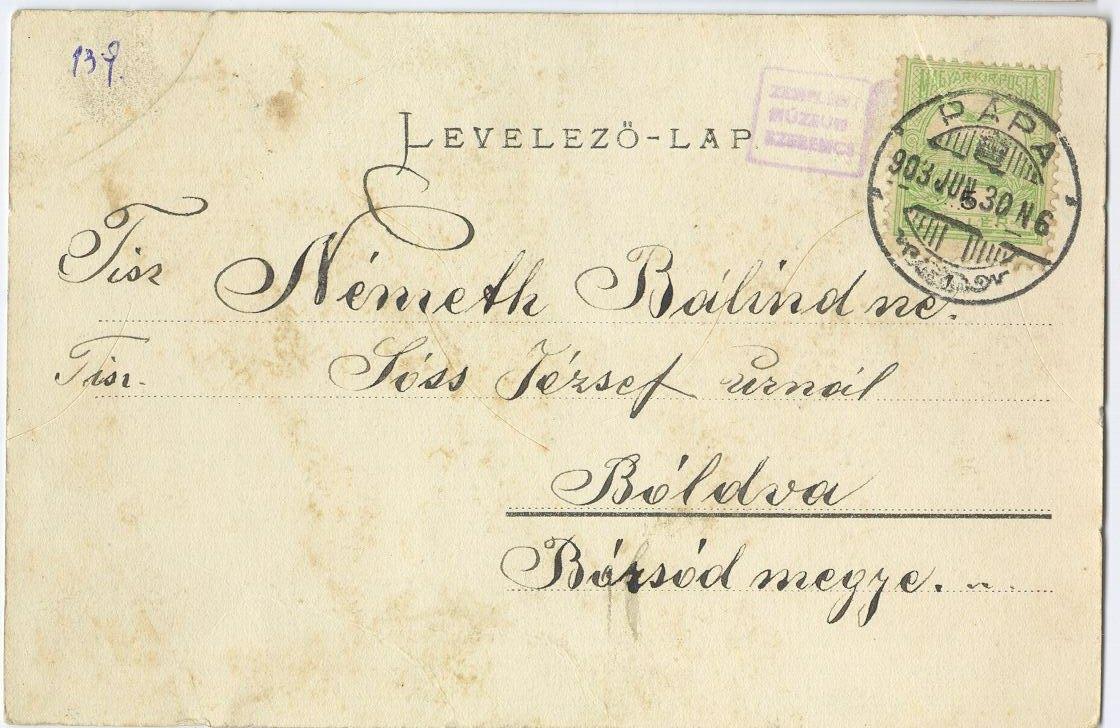 139.
LEVELEZŐ-LAP.
ZEMPLÉNI
MÚZEUM
SZERENCS
MAGYAR KIR. POSTA
PÁPA
903 JUN 30 N 6
5
Tisz Németh Bálindné.
Tisz. Sóss József úrnál
Bóldva
Bórsód megye.